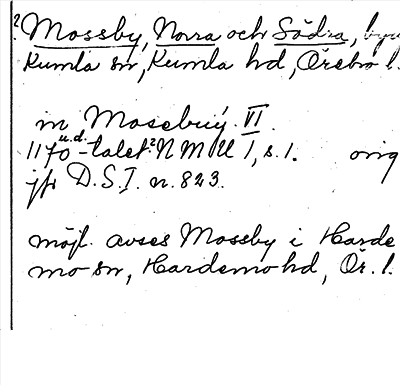 ? Mossby, Norra och Södra, byar
Kumla sn, Kumla hd, Örebro l.
in Mosebrÿ. VI.
u.d.
1170-talet? NMU I, s. 1. orig
jfr D.S.I. n. 823.
möjl. avses Mossby i Harde
mo sn, Hardemo hd, Ör. l.